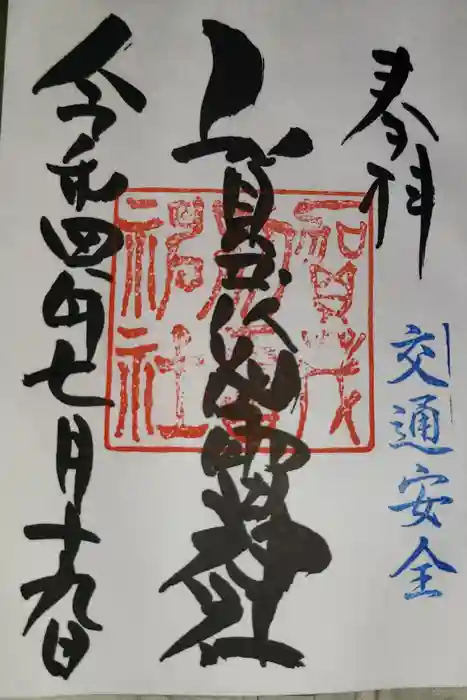 奉拝
交通安全
賀茂別雷神社
令和四年七月十九日
賀茂
別雷
神社